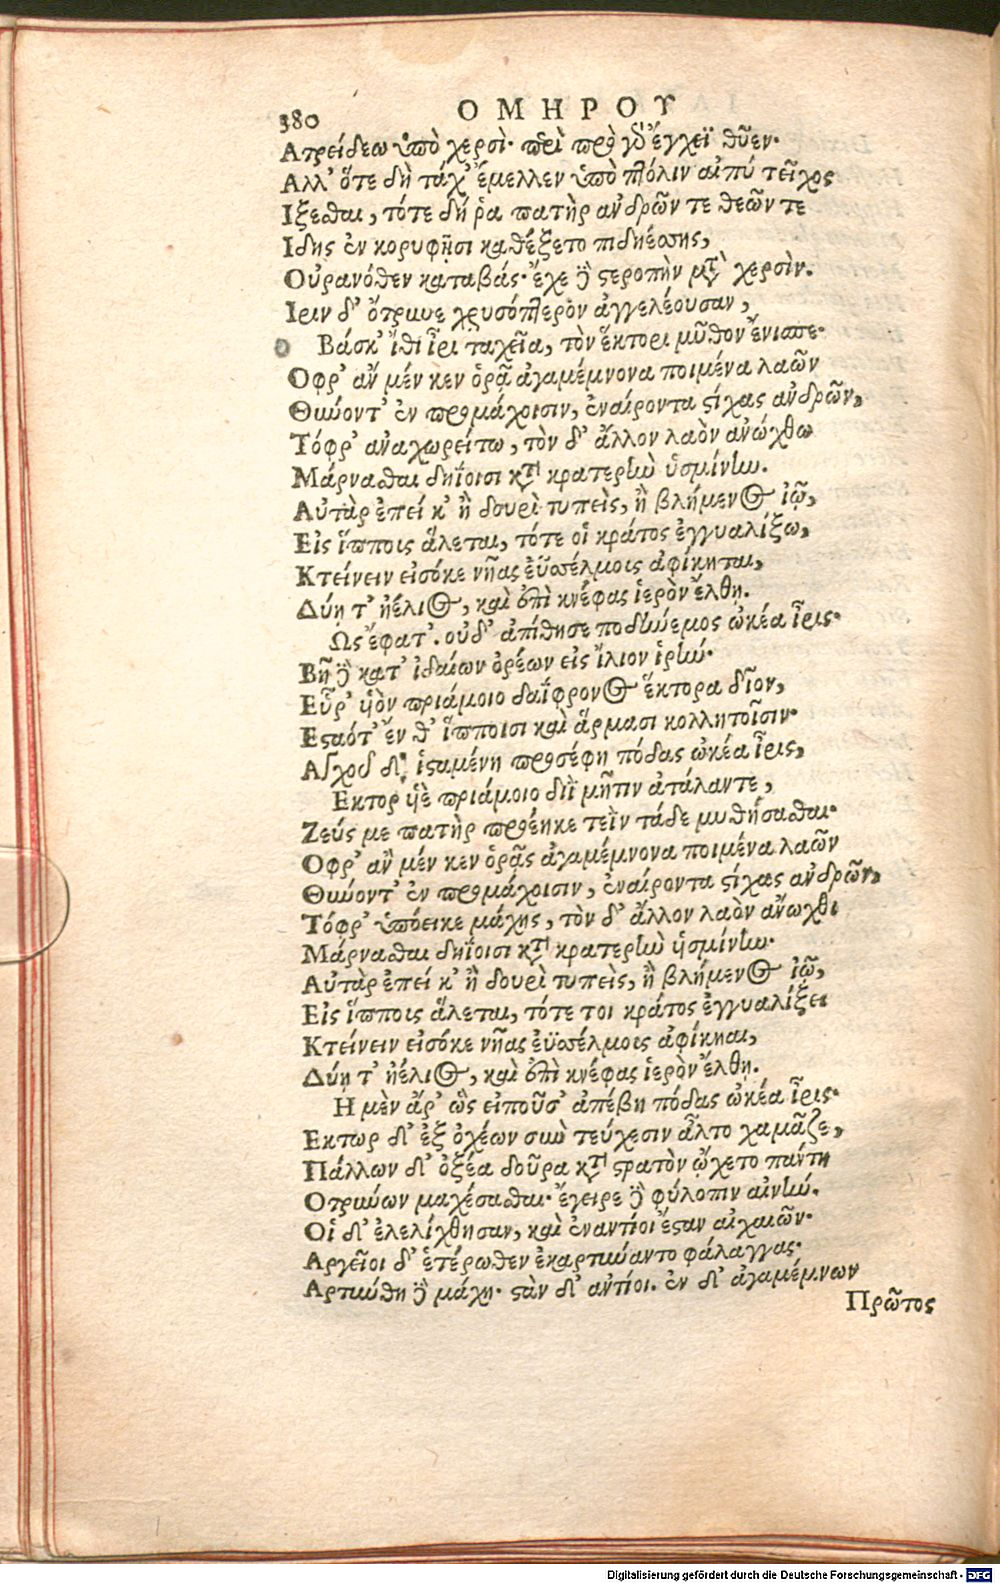 380 ΟΜΗΡΟΥ
Ατρείδεω ὑπὸ χερσί· περὶ πρὸ γὰρ ἔγχεϊ θῦεν.
Αλλ' ὅτε δὴ τάχ' ἔμελλεν ὑπὸ πτόλιν αἰπύ τεῖχος
Ιξεσθαι, τότε δή ῥα πατὴρ ἀνδρῶν τε θεῶν τε
Ιδης ἐν κορυφῇσι καθέξετο πιδηέσσης,
Οὐρανόθεν καταβάς· ἔχε δὲ στεροπὴν μετὰ χερσὶν.
Ιριν δ' ὄτρυνε χρυσόπτερον ἀγγελέουσαν,
Βάσκ' ἴθι ἶρι ταχεῖα, τὸν ἕκτορι μῦθον ἔνισπε·
Οφρ' ἂν μέν κεν ὁρᾷ ἀγαμέμνονα ποιμένα λαῶν
Θύνοντ' ἐν προμάχοισιν, ἐναίροντα στίχας ἀνδρῶν,
Τόφρ' ἀναχωρείτω, τὸν δ' ἄλλον λαὸν ἀνώχθω
Μάρνασθαι δηΐοισι κατὰ κρατερὴν ὑσμίνην.
Αὐτὰρ ἐπεί κ' ἢ δουρὶ τυπεὶς, ἢ βλήμενος ἰῷ,
Εἰς ἵππους ἅλεται, τότε οἱ κράτος ἐγγυαλίξω,
Κτείνειν εἰσόκε νῆας ἐϋσσέλμους ἀφίκηται,
Δύῃ τ' ἠέλιος, καὶ ἐπὶ κνέφας ἱερὸν ἔλθῃ.
Ως ἔφατ'. οὐδ' ἀπίθησε ποδήνεμος ὠκέα ἶρις·
Βῆ δὲ κατ' ἰδαίων ὀρέων εἰς ἴλιον ἱρήν·
Εὗρ' υἱὸν πριάμοιο δαΐφρονος ἕκτορα δῖον,
Εσταότ' ἔν θ' ἵπποισι καὶ ἅρμασι κολλητοῖσιν·
Αγχοῦ δ' ἱσταμένη προσέφη πόδας ὠκέα ἶρις,
Εκτορ υἱὲ πριάμοιο διῒ μῆτιν ἀτάλαντε,
Ζεύς με πατὴρ προέηκε τεῒν τάδε μυθήσασθαι·
Οφρ' ἂν μέν κεν ὁρᾷς ἀγαμέμνονα ποιμένα λαῶν
Θύνοντ' ἐν προμάχοισιν, ἐναίροντα στίχας ἀνδρῶν,
Τόφρ' ὑπόεικε μάχης, τὸν δ' ἄλλον λαὸν ἄνωχθι
Μάρνασθαι δηΐοισι κατὰ κρατερὴν ὑσμίνην·
Αὐτὰρ ἐπεί κ' ἢ δουρὶ τυπεὶς, ἢ βλήμενος ἰῷ,
Εἰς ἵππους ἅλεται, τότε τοι κράτος ἐγγυαλίξει
Κτείνειν εἰσόκε νῆας ἐϋσσέλμους ἀφίκηαι,
Δύῃ τ' ἠέλιος, καὶ ἐπὶ κνέφας ἱερὸν ἔλθῃ.
Η μὲν ἄρ' ὣς εἰποῦσ' ἀπέβη πόδας ὠκέα ἶρις·
Εκτωρ δ' ἐξ ὀχέων σὺν τεύχεσιν ἆλτο χαμᾶζε,
Πάλλων δ' ὀξέα δοῦρα κατὰ στρατὸν ᾤχετο πάντῃ
Οτρύνων μαχέσασθαι· ἔγειρε δὲ φύλοπιν αἰνήν.
Οἱ δ' ἐλελίχθησαν, καὶ ἐναντίοι ἔσταν ἀχαιῶν·
Αργεῖοι δ' ἑτέρωθεν ἐκαρτύναντο φάλαγγας·
Αρτύνθη δὲ μάχη· στὰν δ' ἀντίοι. ἐν δ' ἀγαμέμνων
Πρῶτος
Digitalisierung gefördert durch die Deutsche Forschungsgemeinschaft - DFG